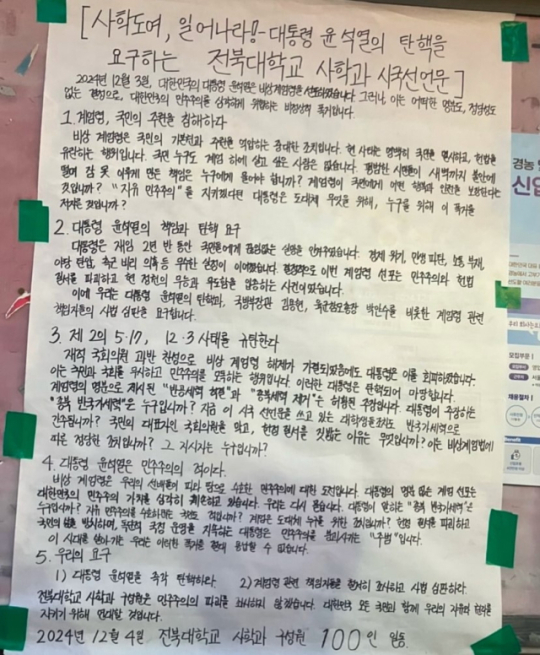 [사학도여, 일어나라! - 대통령 윤석열의 탄핵을
요구하는 전북대학교 사학과 시국선언문]
2024년 12월 3일, 대한민국의 대통령 윤석열은 비상계엄령을 선포하였습니다. 그러나, 이는 어떠한 명분도, 정당성도
없는 결정으로, 대한민국의 민주주의를 심각하게 위협하는 비상식적 폭거입니다.
1. 계엄령, 국민의 주권을 침해하다
비상 계엄령은 국민의 기본권과 주권을 억압하는 중대한 조치입니다. 현 사태는 명백히 국민을 멸시하고, 헌법을
유린하는 행위입니다. 국민 누구도 계엄 하에 살고 싶은 사람은 없습니다. 평범한 시민들이 새벽까지 불안에
떨며 잠 못 이루게 만든 책임은 누구에게 물어야 합니까? 계엄령이 국민에게 어떤 행복과 안전을 보장한다는
것입니까? "자유 민주주의"를 지키겠다던 대통령은 도대체 무엇을 위해, 누구를 위해 이 폭거를
저지른 것입니까?
2. 대통령 윤석열의 책임과 탄핵 요구
대통령은 재임 2년 반 동안 국민들에게 끊임없는 실망을 안겨주었습니다. 경제 위기, 민생 파탄, 노동 부재,
야당 탄압, 측근 비리 의혹 등 무수한 실정이 이어졌습니다. 결정적으로 이번 계엄령 선포는 민주주의와 헌법
질서를 파괴하고 현 정권의 무능과 무도함을 입증하는 사건이었습니다.
이에 우리는 대통령 윤석열의 탄핵과, 국방부장관 김용현, 육군참모총장 박안수를 비롯한 계엄령 관련
책임자들의 사법 심판을 요구합니다.
3. 제 2의 5·17, 12·3사태를 규탄한다
재적 국회의원 과반 찬성으로 비상 계엄령 해제가 가결되었음에도 대통령은 이를 회피하였습니다.
이는 국민과 국회를 무시하고 민주주의를 모욕하는 행위입니다. 이러한 대통령은 탄핵되어 마땅합니다.
계엄령의 명분으로 제시된 "반공세력 척결"과 "종북세력 제거"는 허황된 주장입니다. 대통령이 주장하는
"종북 반국가세력"은 누구입니까? 지금 이 시국 선언문을 쓰고 있는 대학생들조차도 반국가세력으로
간주됩니까? 국민의 대표자인 국회의원을 막고, 헌정 질서를 짓밟는 이유는 무엇입니까? 이는 비상계엄법에
따른 정당한 조치입니까? 그 지시자는 누구입니까?
4. 대통령 윤석열은 민주주의의 적이다.
비상 계엄령은 우리의 선배들이 피와 땀으로 수호한 민주주의에 대한 도전입니다. 대통령의 명분 없는 계엄 선포는
대한민국의 민주주의 가치를 심각히 훼손하고 있습니다. 우리는 다시 묻습니다. 대통령이 말하는 "종북 반국가세력"은
누구입니까? 자유 민주주의를 수호하려는 국민도 적입니까? 계엄은 도대체 누구를 위한 조치입니까? 헌법 질서를 파괴하고
국민의 삶을 방치하며, 독단적 국정 운영을 지속하는 대통령은 민주주의를 무너뜨리는 "주범"입니다.
이 시대를 살아가는 우리는 이러한 폭거를 결코 용납할 수 없습니다.
5. 우리의 요구
1) 대통령 윤석열을 즉각 탄핵하라 2) 계엄령 관련 책임자들을 철저히 조사하고 사법 심판하라.
전북대학교 사학과 구성원은 민주주의의 파괴를 좌시하지 않겠습니다. 대한민국 모든 국민과 함께 우리의 자유와 권리를
지키기 위해 연대할 것입니다.
2024년 12월 4일 전북대학교 사학과 구성원 100인 일동
경농
신입
모집부문
채용절차
Benefit